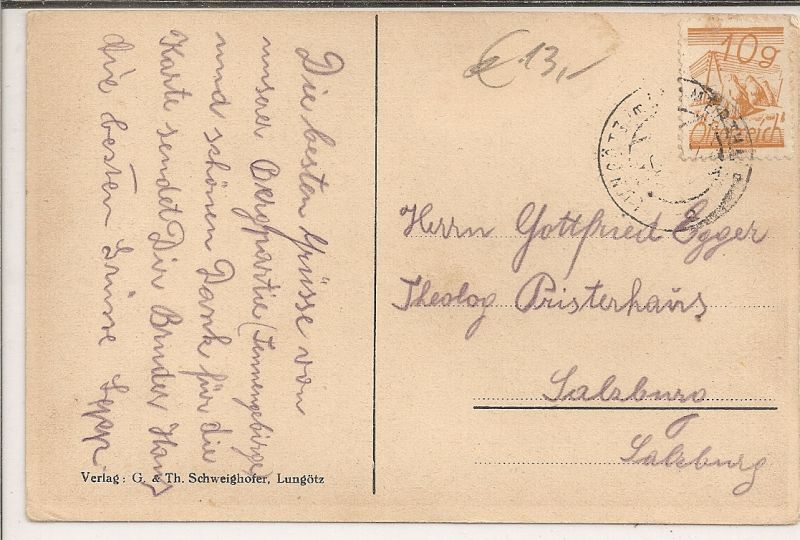 Die besten Grüsse von
unserer Bergpartie (Tennengebirge)
und schönen Dank für die
Karte sendet Dir Bruder Hans
die besten Grüsse Sepp.
Verlag: G. & Th. Schweighofer, Lungötz
€ 13,-
10g
Österreich
Herrn Gottfried Egger
Theolog Pristerhaus
Salzburg
Salzburg